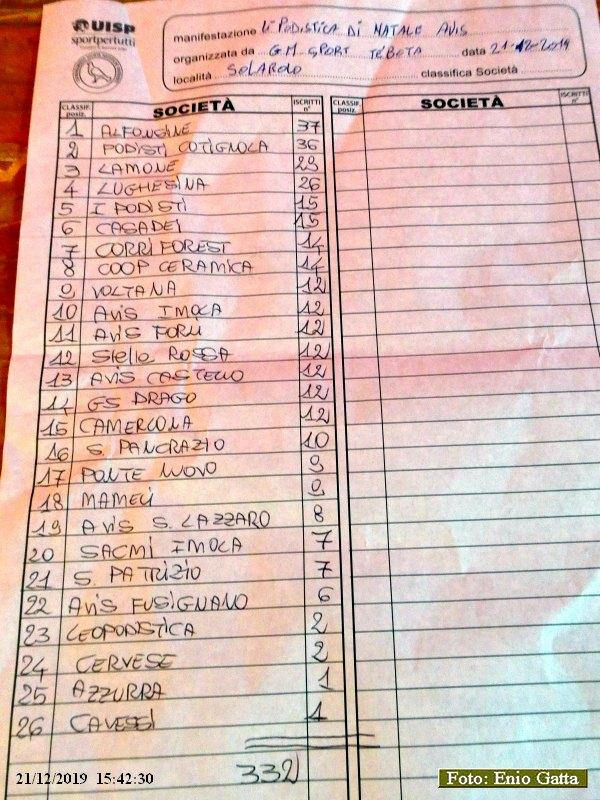 UISP
sportpertutti
manifestazione 4ª PODISTICA DI NATALE AVIS
organizzata da G.M. SPORT TEBETA data 21-12-2019
località SOLAROLO classifica Società
CLASSIF. posiz. SOCIETÀ ISCRITTI n° CLASSIF. posiz. SOCIETÀ ISCRITTI n°
1 ALFONSINE 37
2 PODISTI COTIGNOLA 36
3 LAMONE 29
4 LUGHESINA 26
5 I PODISTI 15
6 CASADEI 15
7 CORRIFOREST 14
8 COOP CERAMICA 14
9 VOLTANA 12
10 AVIS IMOLA 12
11 AVIS FORLI 12
12 Stella ROSSA 12
13 AVIS CASTELLO 12
14 GS DRAGO 12
15 CAMERLONA 12
16 S. PANCRAZIO 10
17 PONTE NUOVO 9
18 MAMELI 9
19 AVIS S. LAZZARO 8
20 SACMI IMOLA 7
21 S. PATRIZIO 7
22 AVIS FUSIGNANO 6
23 LEOPODISTICA 2
24 CERVESE 2
25 AZZURRA 1
26 CAVESSI 1
332
21/12/2019 15:42:30
Foto: Enio Gatta